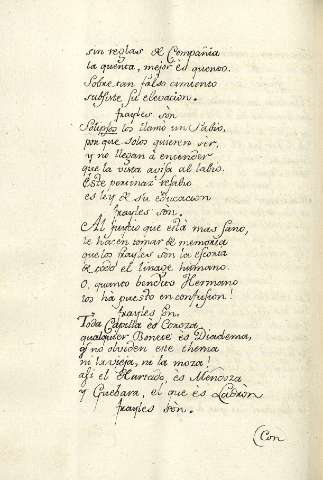 sin reglas de Compañia
la quenta, mejor ès quento.
Sobre tan falso cimiento
subsiste su elevacion.
frayles son
Solipsos los llamò un Sabio,
por que solos quieren ser,
y no llegan à entender
que la vista avisa al labio.
Este pertinaz resabio
es ley de su educacion
frayles son.
Al juicio que està mas sano,
le hacen tomar de memoria
que los frayles son la escoria
de todo el linage humano.
O, quanto bendito Hermano
los ha puesto en confusion!
frayles son.
Toda Capilla ès Coroza,
qualquier Bonete ès Diadema,
y no olviden este thema
ni la vieja, ni la moza!
asi el Hurtado, ès Mendoza
y Guebara, el que ès Ladron
frayles son.
Con